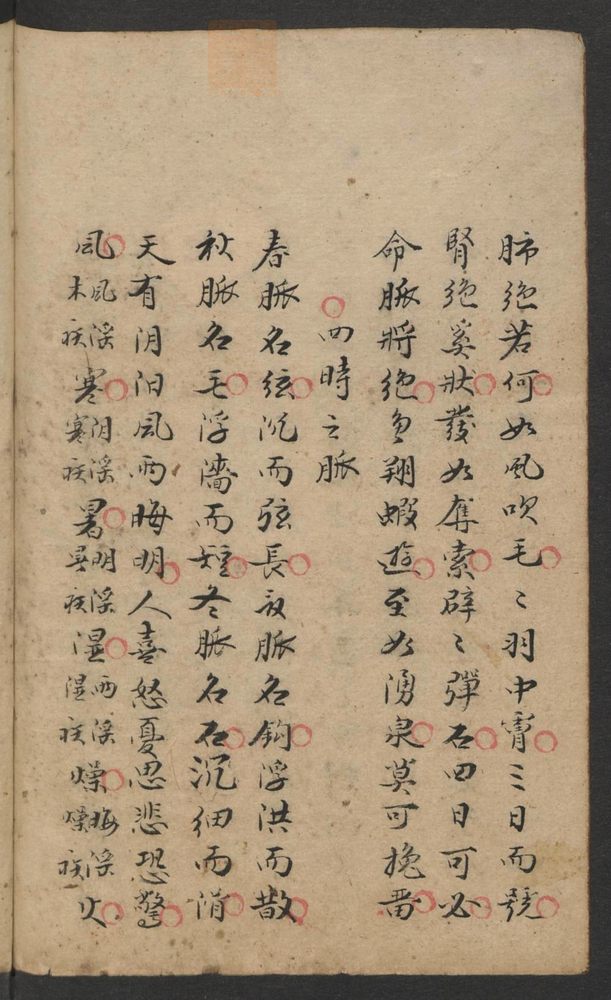 肺絶若何如風吹毛〻羽中膚三日而號
腎絶奚狀發如奪索辟〻彈石四日可必
命脈將絶魚翔蝦遊至如湧泉莫可挽畱
四時之脈
春脈名弦沉而弦長夏脈名鈎浮洪而散
秋脈名毛浮濇而短冬脈名石沉細而滑
天有阴阳風雨晦明人喜怒憂思悲恐驚
風風淫末疾寒阴淫寒疾暑明淫暑疾湿雨淫湿疾燥晦淫燥疾火